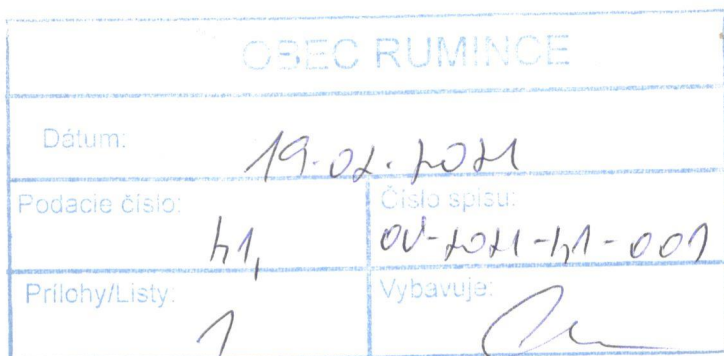 OBEC RUMINCE
Dátum:
19.02.2021
Podacie číslo:
41,
Číslo spisu:
OÚ-2021-41-001
Prílohy/Listy:
1
Vybavuje: